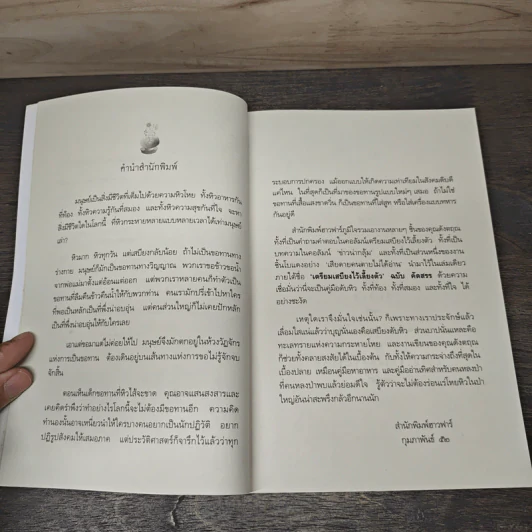 คำนำสำนักพิมพ์
มนุษย์เป็นสิ่งมีชีวิตที่เต็มไปด้วยความหิวโหย ทั้งหิวอาหารกันที่ท้อง ทั้งหิวความรู้กันที่สมอง และทั้งหิวความสุขกันที่ใจ จะหาสิ่งมีชีวิตใดในโลกนี้ ที่หิวกระหายหลายแบบหลายเวลาได้เท่ามนุษย์
หิวมาก หิวทุกวัน แต่เสบียงกลับน้อย ถ้าไม่เป็นขอทานทาง
ร่างกาย มนุษย์ก็มักเป็นขอทานทางวิญญาณ พวกเราขอข้าวขอน้ำ
จากพ่อแม่มาตั้งแต่อ้อนแต่ออก แต่พวกเราหลายคนก็ทำตัวเป็น
ขอทานที่ลืมต้นข้าวต้นน้ำให้กับพวกท่าน คนเรามักปรี่เข้าไปหาใคร
ที่พอเป็นหลักเป็นที่พึ่งน่าอบอุ่น แต่ส่วนใหญ่ก็ไม่เคยปักหลัก
เป็นที่พึ่งน่าอบอุ่นให้กับใครเลย
เอาแต่ขอมาแต่ไม่ค่อยให้ไป มนุษย์จึงมักตกอยู่ในห้วงวัฏจักร
แห่งการเป็นขอทาน ต้องเดินอยู่บนเส้นทางแห่งการขอไม่รู้จักจบ
จักสิ้น
ตอนเห็นเด็กขอทานที่หิวโซจะขาด คุณอาจแสนสงสารและ
เคยคิดรำพึงว่าทำอย่างไรโลกนี้จะไม่ต้องมีขอทานอีก ความคิด
ทำนองนั้นอาจเหนี่ยวนำให้ใครบางคนอยากเป็นนักปฏิวัติ อยาก
ปฏิรูปสังคมให้เสมอภาค แต่ประวัติศาสตร์ก็จารึกไว้แล้วว่าทุก
ระบอบการปกครอง แม้ออกแบบให้เกิดความเท่าเทียมในสังคมดิบดี
แค่ไหน ในที่สุดก็เป็นที่มาของขอทานรูปแบบใหม่ๆ เสมอ ถ้าไม่ใช่
ขอทานที่เสื้อแสงขาดวิ่น ก็เป็นขอทานที่ใส่สูท หรือใส่เครื่องแบบทหาร
กันอยู่ดี
สำนักพิมพ์ฮาวฟาร์ภูมิใจรวมเอางานหลายๆ ชิ้นของคุณดังตฤณ
ทั้งที่เป็นคำถามคำตอบในคอลัมน์เตรียมเสบียงไว้เลี้ยงตัว ทั้งที่เป็น
บทความในคอลัมน์ 'ข่าวน่ากลุ้ม' และทั้งที่เป็นส่วนหนึ่งของงาน
ชิ้นโบแดงอย่าง 'เสียดายคนตายไม่ได้อ่าน' นำมาไว้ในเล่มเดียว
ภายใต้ชื่อ 'เตรียมเสบียงไว้เลี้ยงตัว' ฉบับ คัดสรร ด้วยความ
เชื่อมั่นว่านี่จะเป็นคู่มือดับหิว ทั้งที่ท้อง ทั้งที่สมอง และทั้งที่ใจ ได้
อย่างชะงัด
เหตุใดเราจึงมั่นใจเช่นนั้น ก็เพราะทางเราประจักษ์แล้ว
เลื่อมใสแน่แล้วว่าบุญนั่นเองคือเสบียงดับหิว ส่วนบาปนั่นแหละคือ
ทะเลทรายแห่งความกระหายไหม้ และงานเขียนของคุณดังตฤณ
ก็ช่วยทั้งคลายสงสัยได้ในเบื้องต้น กับทั้งให้ความกระจ่างถึงที่สุดใน
เบื้องปลาย เหมือนคู่มือหาอาหาร และคู่มืออ่านทิศสำหรับคนหลงป่า
ที่คนหลงป่าพบแล้วย่อมดีใจ รู้ตัวว่าจะไม่ต้องร่อนเร่โหยหิวในป่า
ใหญ่อันน่าสะพรึงกลัวอีกนานนัก
สำนักพิมพ์ฮาวฟาร์
กุมภาพันธ์ ๕๒